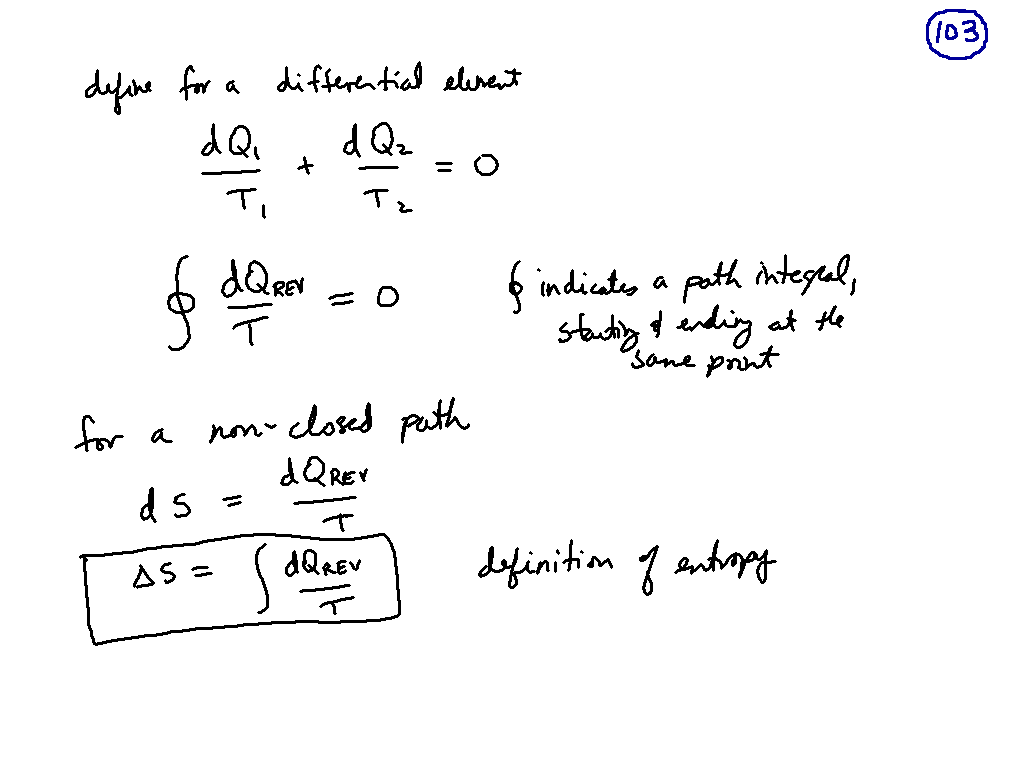 103
define for a differential element
dQ₁/T₁ + dQ₂/T₂ = 0
∮ dQREV/T = 0
∮ indicates a path integral,
starting & ending at the
same point
for a non-closed path
dS = dQREV/T
ΔS = ∫ dQREV/T
definition of entropy